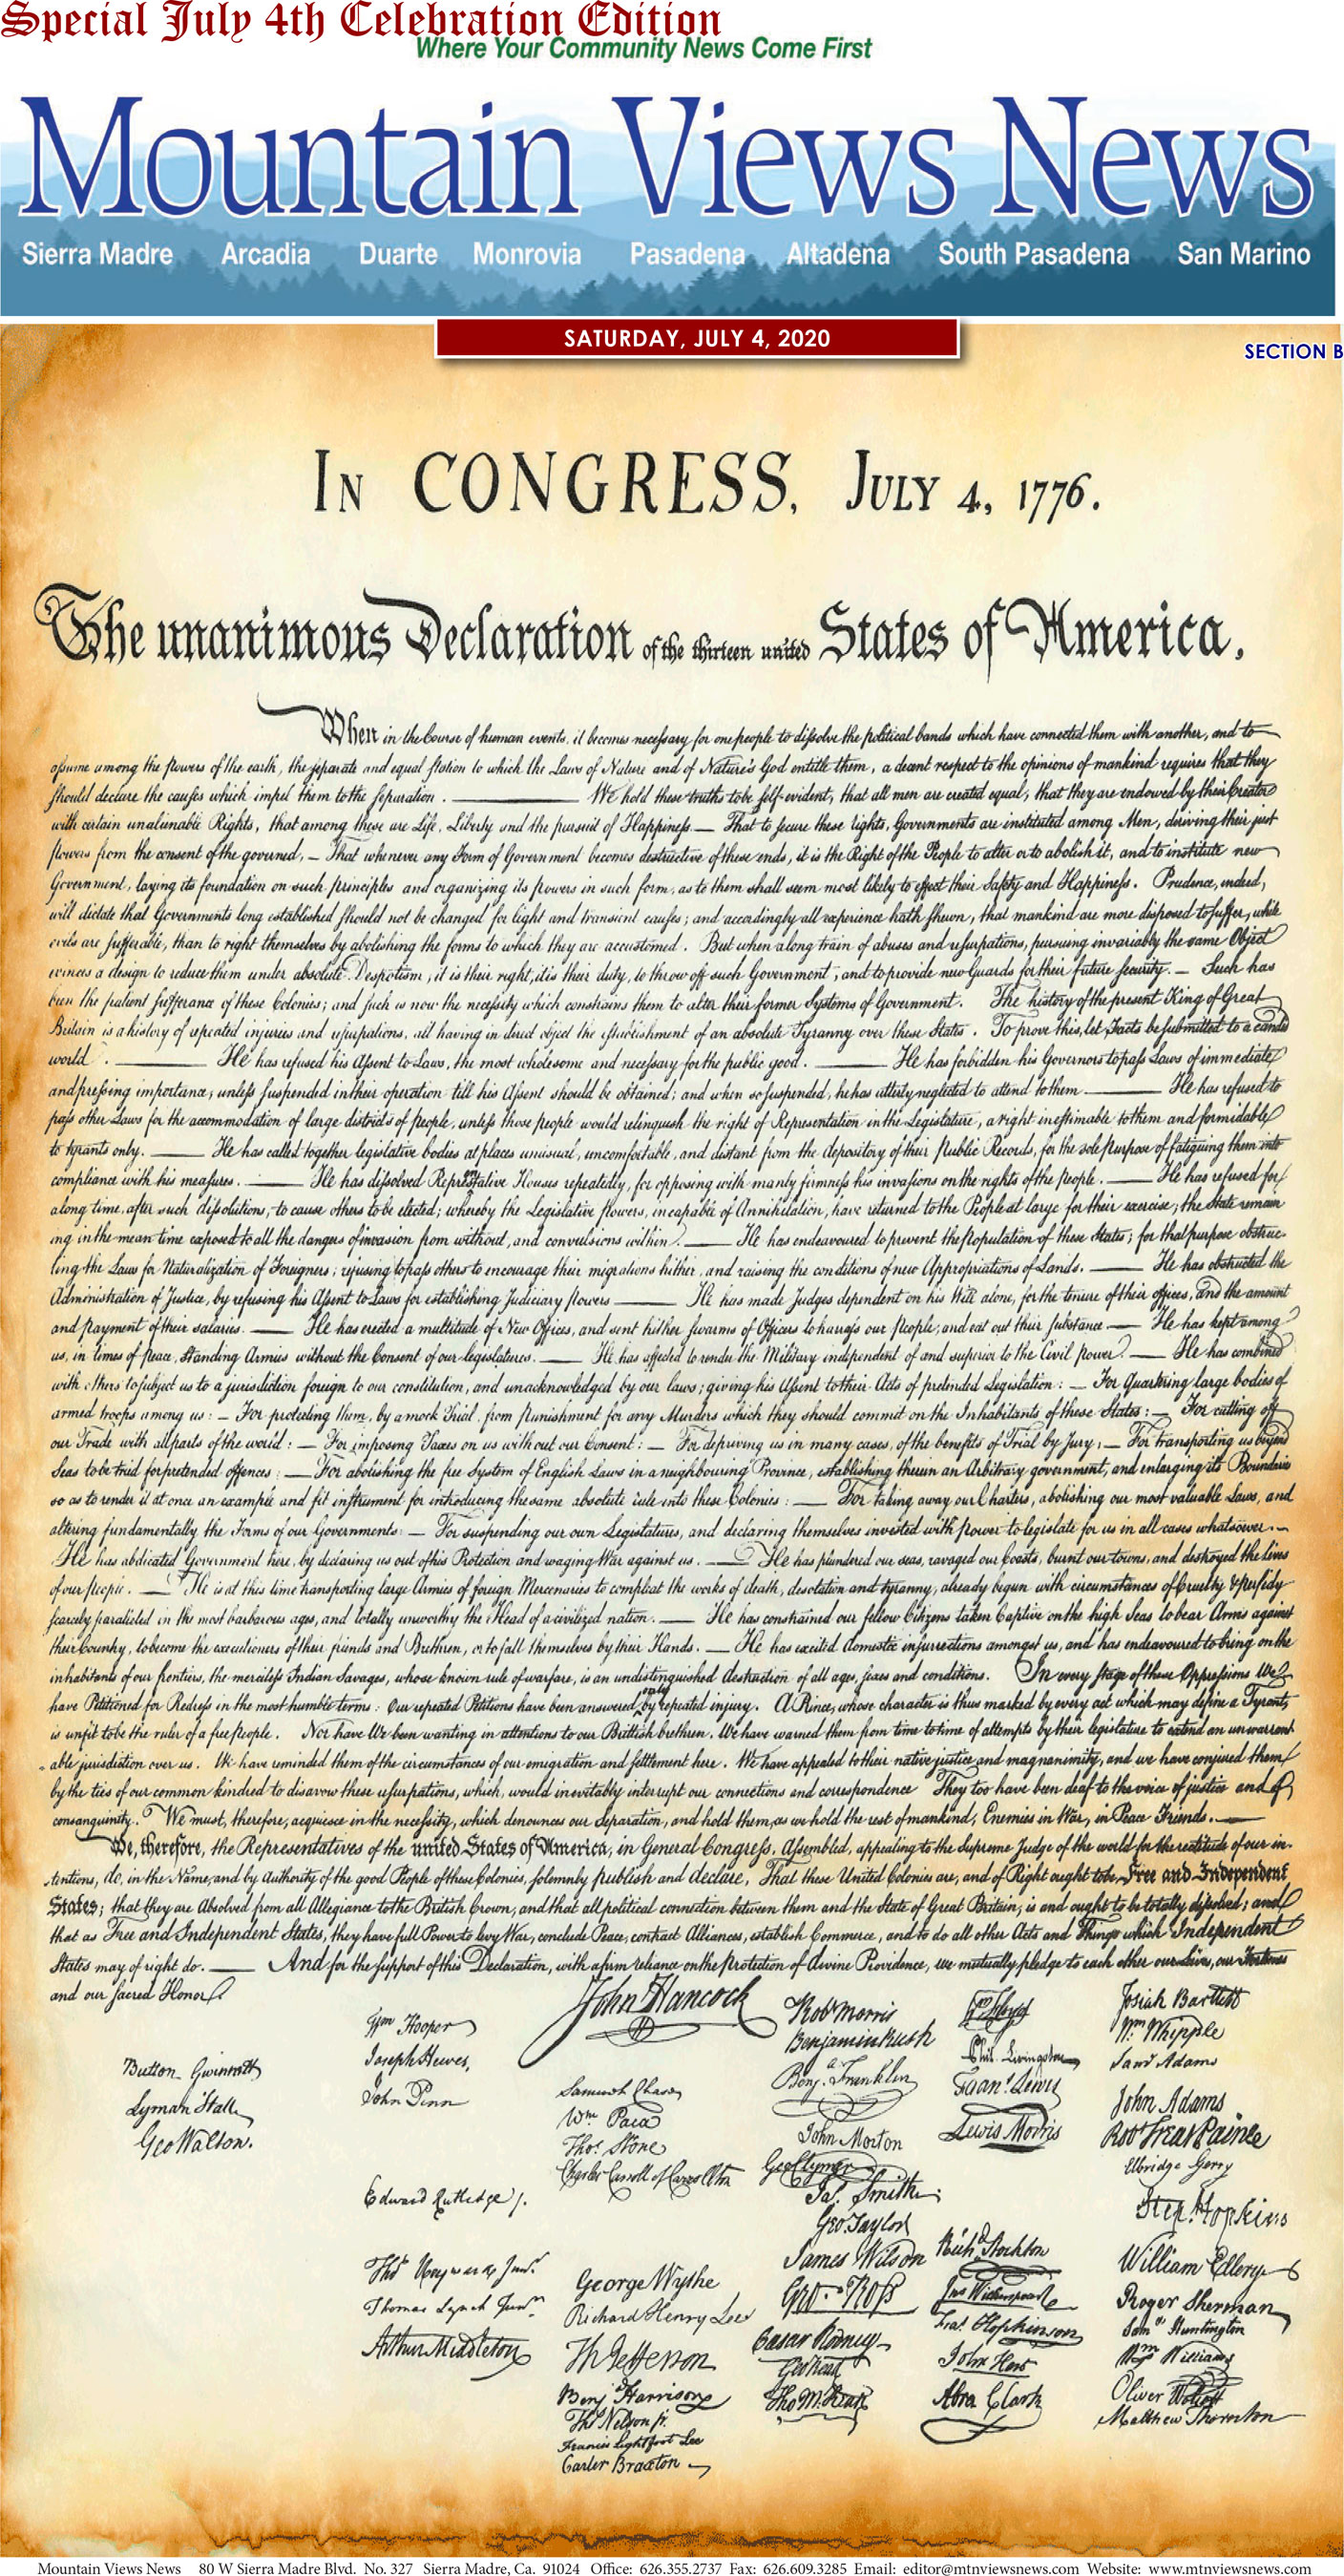 Special July 4th Celebration Edition
Where Your Community News Come First
Mountain Views News
Sierra Madre Arcadia Duarte Monrovia Pasadena Altadena South Pasadena San Marino
SATURDAY, JULY 4, 2020
SECTION B
IN CONGRESS, JULY 4, 1776.
The unanimous Declaration of the thirteen united States of America,
When in the Course of human events, it becomes necessary for one people to dissolve the political bands which have connected them with another, and to
assume among the powers of the earth, the separate and equal station to which the Laws of Nature and of Nature's God entitle them, a decent respect to the opinions of mankind requires that they
should declare the causes which impel them to the separation. — We hold these truths to be self-evident, that all men are created equal, that they are endowed by their Creator
with certain unalienable Rights, that among these are Life, Liberty and the pursuit of Happiness.— That to secure these rights, Governments are instituted among Men, deriving their just
powers from the consent of the governed, — That whenever any Form of Government becomes destructive of these ends, it is the Right of the People to alter or to abolish it, and to institute new
Government, laying its foundation on such principles and organizing its powers in such form, as to them shall seem most likely to effect their Safety and Happiness. Prudence, indeed,
will dictate that Governments long established should not be changed for light and transient causes; and accordingly all experience hath shewn, that mankind are more disposed to suffer, while
evils are sufferable, than to right themselves by abolishing the forms to which they are accustomed. But when a long train of abuses and usurpations, pursuing invariably the same Object
evinces a design to reduce them under absolute Despotism, it is their right, it is their duty, to throw off such Government, and to provide new Guards for their future security.— Such has
been the patient sufferance of these Colonies; and such is now the necessity which constrains them to alter their former Systems of Government. The history of the present King of Great
Britain is a history of repeated injuries and usurpations, all having in direct object the establishment of an absolute Tyranny over these States. To prove this, let Facts be submitted to a candid
world. — He has refused his Assent to Laws, the most wholesome and necessary for the public good. — He has forbidden his Governors to pass Laws of immediate
and pressing importance, unless suspended in their operation till his Assent should be obtained; and when so suspended, he has utterly neglected to attend to them — He has refused to
pass other Laws for the accommodation of large districts of people, unless those people would relinquish the right of Representation in the Legislature, a right inestimable to them and formidable
to tyrants only. — He has called together legislative bodies at places unusual, uncomfortable, and distant from the depository of their Public Records, for the sole purpose of fatiguing them into
compliance with his measures. — He has dissolved Representative Houses repeatedly, for opposing with manly firmness his invasions on the rights of the people. — He has refused for
a long time, after such dissolutions, to cause others to be elected; whereby the Legislative powers, incapable of Annihilation, have returned to the People at large for their exercise; the State remain
ing in the mean time exposed to all the dangers of invasion from without, and convulsions within. — He has endeavoured to prevent the population of these States; for that purpose obstruc-
ting the Laws for Naturalization of Foreigners; refusing to pass others to encourage their migrations hither, and raising the conditions of new Appropriations of Lands. — He has obstructed the
Administration of Justice, by refusing his Assent to Laws for establishing Judiciary powers — He has made Judges dependent on his Will alone, for the tenure of their offices, and the amount
and payment of their salaries. — He has erected a multitude of New Offices, and sent hither swarms of Officers to harrass our people, and eat out their substance — He has kept among
us, in times of peace, Standing Armies without the Consent of our legislatures. — He has affected to render the Military independent of and superior to the Civil power. — He has combined
with others to subject us to a jurisdiction foreign to our constitution, and unacknowledged by our laws; giving his Assent to their Acts of pretended Legislation: — For Quartering large bodies of
armed troops among us: — For protecting them, by a mock Trial, from punishment for any Murders which they should commit on the Inhabitants of these States: — For cutting off
our Trade with all parts of the world: — For imposing Taxes on us without our Consent: — For depriving us in many cases, of the benefits of Trial by Jury; — For transporting us beyond
Seas to be tried for pretended offences: — For abolishing the free System of English Laws in a neighbouring Province, establishing therein an Arbitrary government, and enlarging its Boundaries
so as to render it at once an example and fit instrument for introducing the same absolute rule into these Colonies: — For taking away our Charters, abolishing our most valuable Laws, and
altering fundamentally the Forms of our Governments: — For suspending our own Legislatures, and declaring themselves invested with power to legislate for us in all cases whatsoever.—
He has abdicated Government here, by declaring us out of his Protection and waging War against us. — He has plundered our seas, ravaged our Coasts, burnt our towns, and destroyed the lives
of our people. — He is at this time transporting large Armies of foreign Mercenaries to compleat the works of death, desolation and tyranny, already begun with circumstances of Cruelty & perfidy
scarcely paralleled in the most barbarous ages, and totally unworthy the Head of a civilized nation. — He has constrained our fellow Citizens taken Captive on the high Seas to bear Arms against
their Country, to become the executioners of their friends and Brethren, or to fall themselves by their Hands. — He has excited domestic insurrections amongst us, and has endeavoured to bring on the
inhabitants of our frontiers, the merciless Indian Savages, whose known rule of warfare, is an undistinguished destruction of all ages, sexes and conditions. In every stage of these Oppressions We
have Petitioned for Redress in the most humble terms: Our repeated Petitions have been answered only by repeated injury. A Prince, whose character is thus marked by every act which may define a Tyrant,
is unfit to be the ruler of a free people. Nor have We been wanting in attentions to our Brittish brethren. We have warned them from time to time of attempts by their legislature to extend an unwarrant-
able jurisdiction over us. We have reminded them of the circumstances of our emigration and settlement here. We have appealed to their native justice and magnanimity, and we have conjured them
by the ties of our common kindred to disavow these usurpations, which, would inevitably interrupt our connections and correspondence They too have been deaf to the voice of justice and of
consanguinity. We must, therefore, acquiesce in the necessity, which denounces our Separation, and hold them, as we hold the rest of mankind, Enemies in War, in Peace Friends.—
We, therefore, the Representatives of the united States of America, in General Congress, Assembled, appealing to the Supreme Judge of the world for the rectitude of our in-
tentions, do, in the Name, and by Authority of the good People of these Colonies, solemnly publish and declare, That these United Colonies are, and of Right ought to be Free and Independent
States; that they are Absolved from all Allegiance to the British Crown, and that all political connection between them and the State of Great Britain, is and ought to be totally dissolved; and
that as Free and Independent States, they have full Power to levy War, conclude Peace, contract Alliances, establish Commerce, and to do all other Acts and Things which Independent
States may of right do. — And for the support of this Declaration, with a firm reliance on the Protection of divine Providence, we mutually pledge to each other our Lives, our Fortunes
and our sacred Honor.
Button Gwinnett
Lyman Hall
Geo Walton.
Wm Hooper
Joseph Hewes,
John Penn
Edward Rutledge /.
Thos Heyward Junr.
Thomas Lynch Junr.
Arthur Middleton
John Hancock
Samuel Chase
Wm. Paca
Thos. Stone
Charles Carroll of Carrollton
George Wythe
Richard Henry Lee
Th Jefferson
Benj Harrison
Thos Nelson jr.
Francis Lightfoot Lee
Carter Braxton
Robt Morris
Benjamin Rush
Benja. Franklin
John Morton
Geo Clymer
Jas. Smith
Geo. Taylor
James Wilson
Geo. Ross
Caesar Rodney
Geo Read
Tho M:Kean
Wm Floyd
Phil. Livingston
Frans. Lewis
Lewis Morris
Richd. Stockton
Jno Witherspoon
Fras. Hopkinson
John Hart
Abra Clark
Josiah Bartlett
Wm: Whipple
Saml Adams
John Adams
Robt Treat Paine
Elbridge Gerry
Step. Hopkins
William Ellery
Roger Sherman
Saml Huntington
Wm Williams
Oliver Wolcott
Matthew Thornton
Mountain Views News 80 W Sierra Madre Blvd. No. 327 Sierra Madre, Ca. 91024 Office: 626.355.2737 Fax: 626.609.3285 Email: editor@mtnviewsnews.com Website: www.mtnviewsnews.com